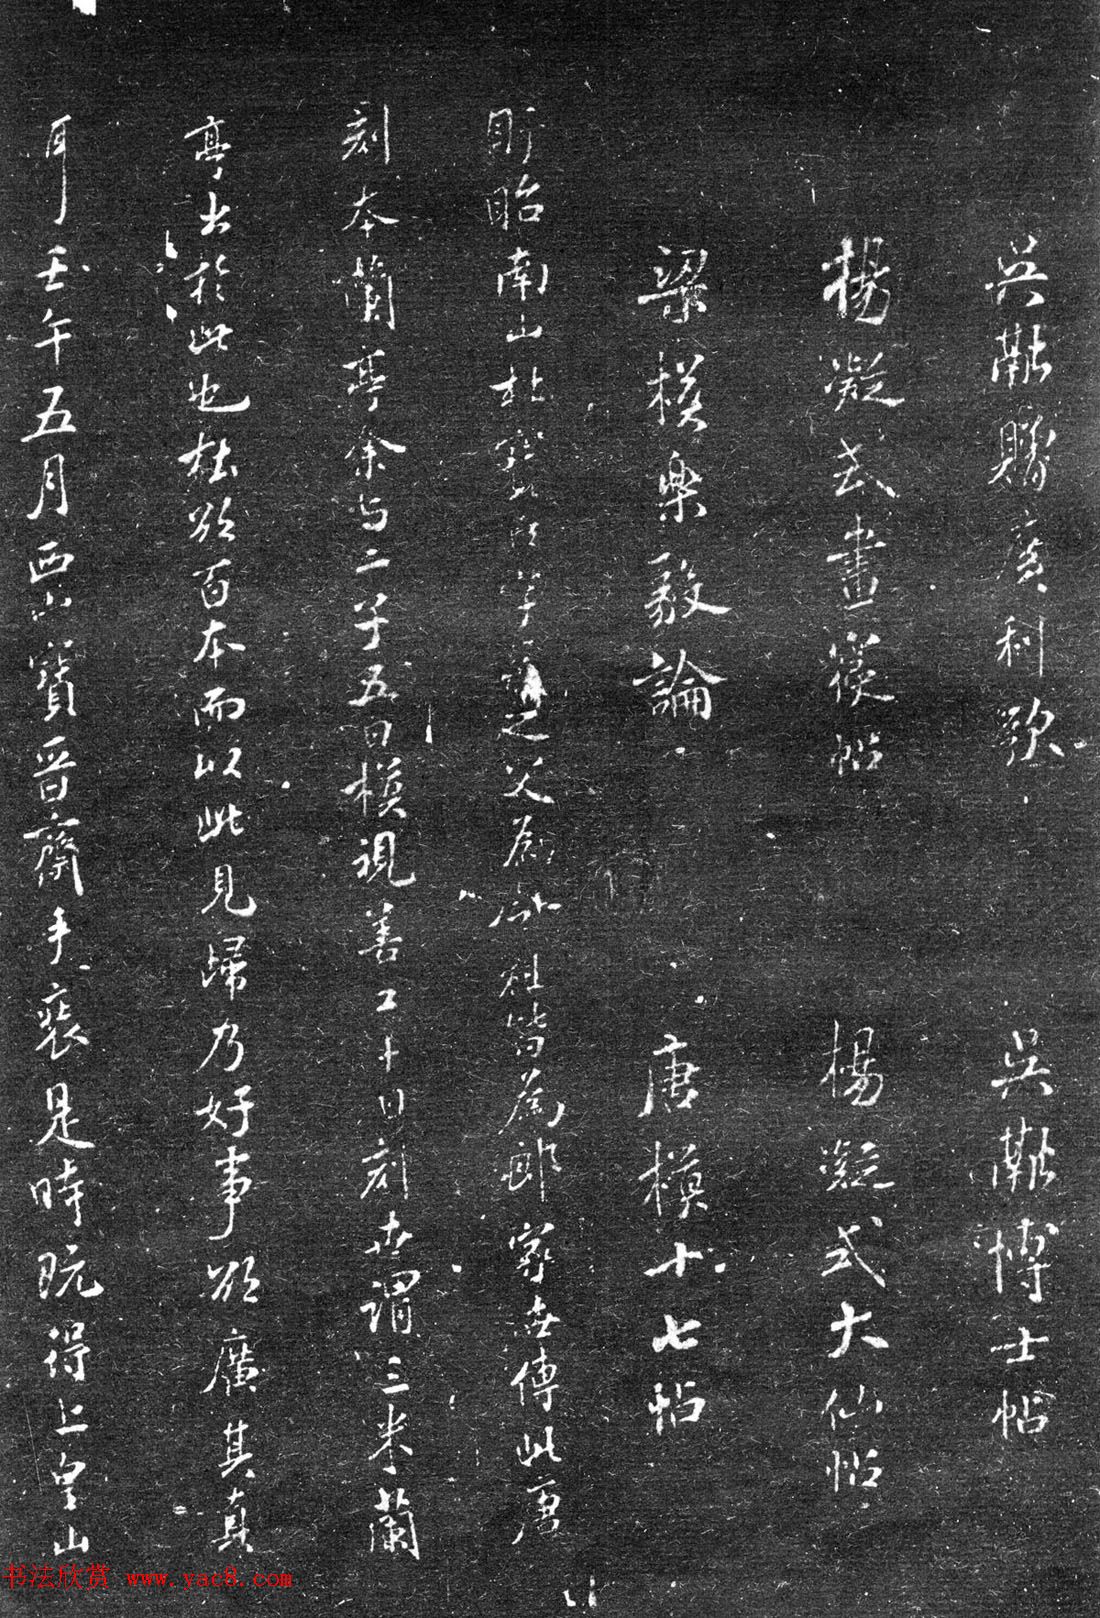 吳融贈廣利歌　吳融博士帖
楊凝式畫簇帖　楊凝式大仙帖
梁模樂毅論　唐模十七帖
盱眙南山杜寶臣字之父為祖皆為郎家世傳此唐
刻本蘭亭余與二子五日模視善工十日刻世謂三米蘭
亭出於此也杜欲百本而以此見歸乃好事欲廣其真
耳壬午五月西山寶晉齋手裝是時既得上皇山
书法欣赏 www.yac8.com